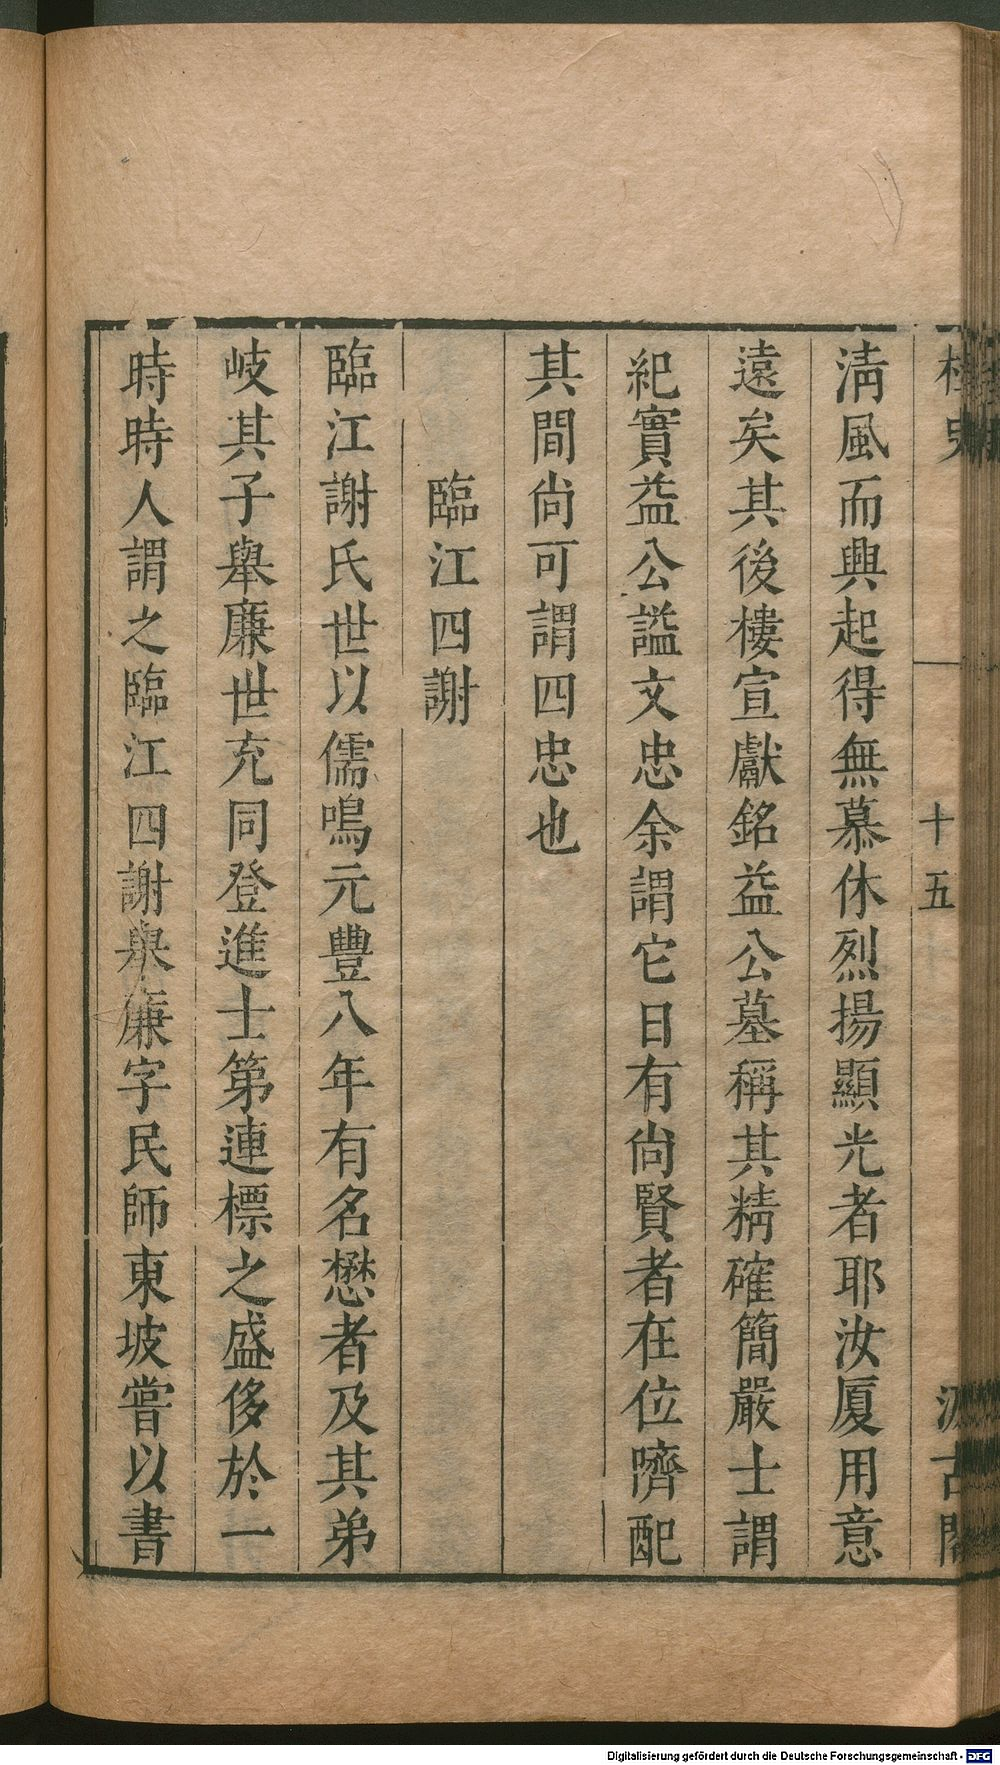 桯史
十五
汲古閣
淸風而興起得無慕休烈揚顯光者耶汝厦用意
遠矣其後樓宣獻銘益公墓稱其精確簡嚴士謂
紀實益公謚文忠余謂它日有尙賢者在位嚌配
其間尙可謂四忠也
臨江四謝
臨江謝氏世以儒鳴元豐八年有名懋者及其弟
岐其子舉廉世充同登進士第連標之盛侈於一
時時人謂之臨江四謝舉廉字民師東坡嘗以書
Digitalisierung gefördert durch die Deutsche Forschungsgemeinschaft - DFG